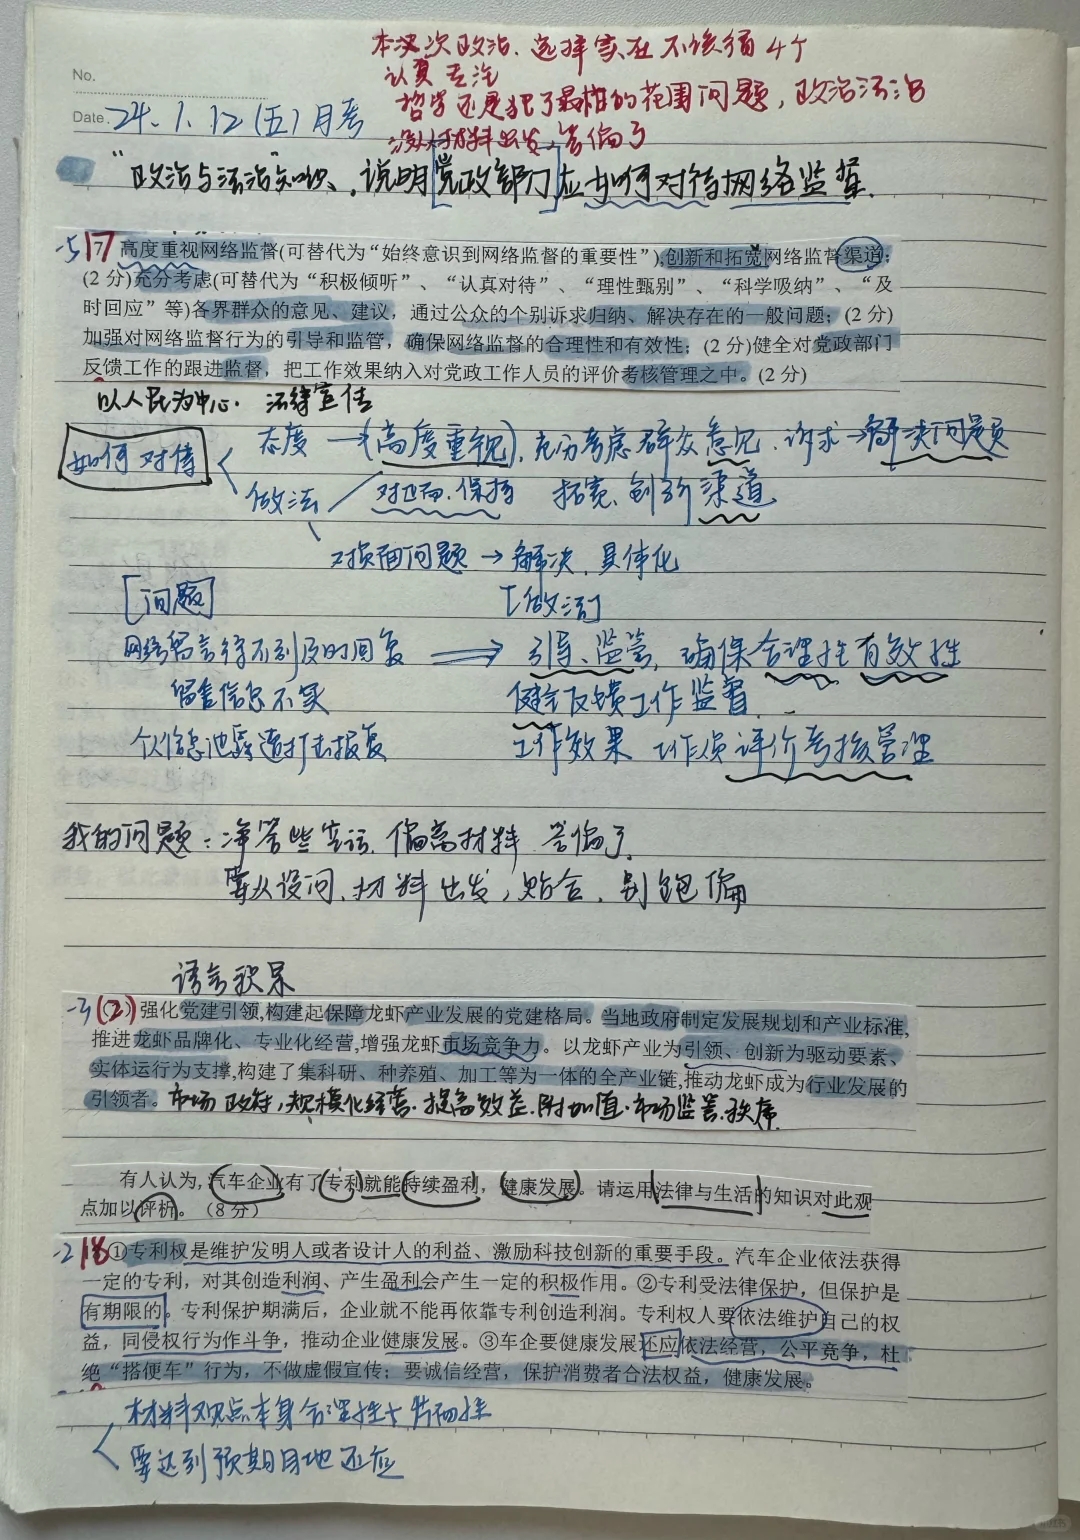 No.
本次政治、选择实在不该错4个
认真专注
哲学还是犯了最怕的范围问题，政治法治
没从材料出发，答偏了
Date. 24.1.12(五)月考
"政治与法治"知识、说明[党政部门]应如何对待网络监督.
-5 17 高度重视网络监督(可替代为“始终意识到网络监督的重要性”),创新和拓宽网络监督渠道;
(2 分)充分考虑(可替代为“积极倾听”、“认真对待”、“理性甄别”、“科学吸纳”、“及
时回应”等)各界群众的意见、建议，通过公众的个别诉求归纳、解决存在的一般问题；(2 分)
加强对网络监督行为的引导和监管，确保网络监督的合理性和有效性；(2 分)健全对党政部门
反馈工作的跟进监督，把工作效果纳入对党政工作人员的评价考核管理之中。(2 分)
以人民为中心. 法律宣传
如何对待
态度 —(高度重视), 充分考虑群众意见、诉求→解决问题
做法 对正面、保持 拓宽、创新渠道
对负面问题→解决、具体化
[问题] [做法]
网络留言得不到及时回复 ⇒ 引导、监管, 确保合理性有效性
留言信息不实 健全反馈工作监督.
个人信息泄露遭打击报复 工作效果 工作人员评价考核管理
我的问题：净答些空话、偏离材料 答偏了.
要从设问、材料出发，贴合、别跑偏
语言积累
-3 (2) 强化党建引领,构建起保障龙虾产业发展的党建格局。当地政府制定发展规划和产业标准,
推进龙虾品牌化、专业化经营,增强龙虾市场竞争力。以龙虾产业为引领、创新为驱动要素、
实体运行为支撑,构建了集科研、种养殖、加工等为一体的全产业链,推动龙虾成为行业发展的
引领者。市场 政府，规模化经营. 提高效益. 附加值. 市场监管. 秩序.
有人认为,汽车企业有了专利就能持续盈利，健康发展。请运用法律与生活的知识对此观
点加以评析。（8 分）
-2 18 ①专利权是维护发明人或者设计人的利益、激励科技创新的重要手段。汽车企业依法获得
一定的专利，对其创造利润、产生盈利会产生一定的积极作用。②专利受法律保护，但保护是
有期限的。专利保护期满后，企业就不能再依靠专利创造利润。专利权人要依法维护自己的权
益，同侵权行为作斗争，推动企业健康发展。③车企要健康发展还应依法经营，公平竞争，杜
绝“搭便车”行为，不做虚假宣传；要诚信经营，保护消费者合法权益，健康发展。
材料观点本身合理性+片面性
要达到预期目地还应